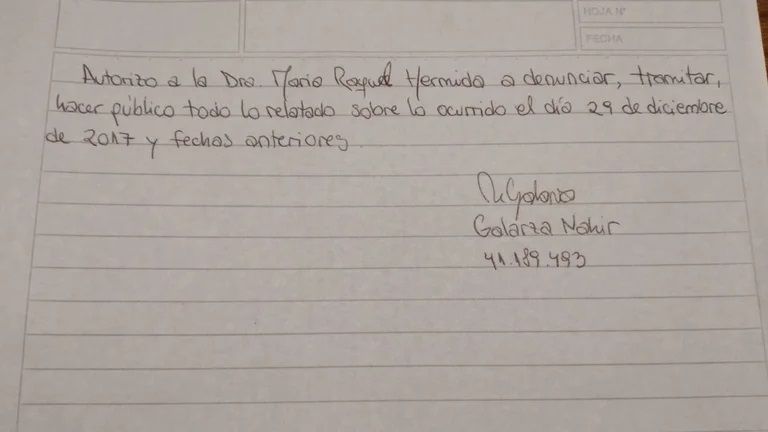 HOJA Nº
FECHA
Autorizo a la Dra. María Raquel Hermida a denunciar, tramitar,
hacer público todo lo relatado sobre lo ocurrido el día 29 de diciembre
de 2017 y fechas anteriores.
N.Galarza
Galarza Nahir
41.189.493